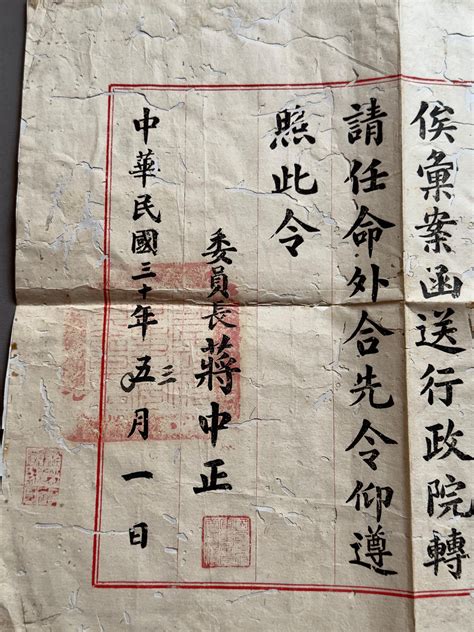 俟彙案函送行政院轉
請任命外合先令仰遵
照此令
委員長蔣中正
中華民國三十年五三月一日